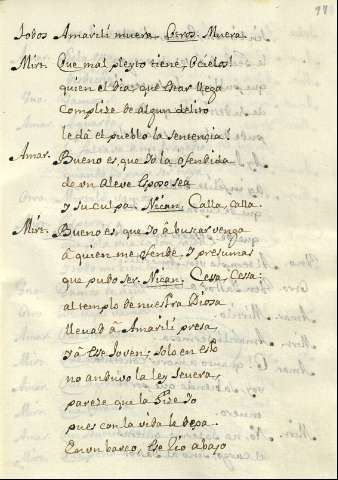 77
Todos Amarili muera. Otros. Muera.
Mirt. Que mal pleyto tiene, ò cielos!
quien el dia, que estar llega
complize de algun delito
le dà el pueblo la sentencia!
Amar. Bueno es, que Yo la ofendida
de un aleve Esposo sea
y su culpa. Nican. Calla, calla.
Mirt. Bueno es, que Yo à buscar venga
à quien me ofende, y presumas
que pudo ser. Nican. Cesa, Cesa:
al templo de nuestra Diosa
llevad à Amarili presa,
y à Ese Joven; solo en esto
no anduvo la ley severa,
pareze que la hize Yo
pues con la vida le dexa.
En un barco, Ese Rio abajo